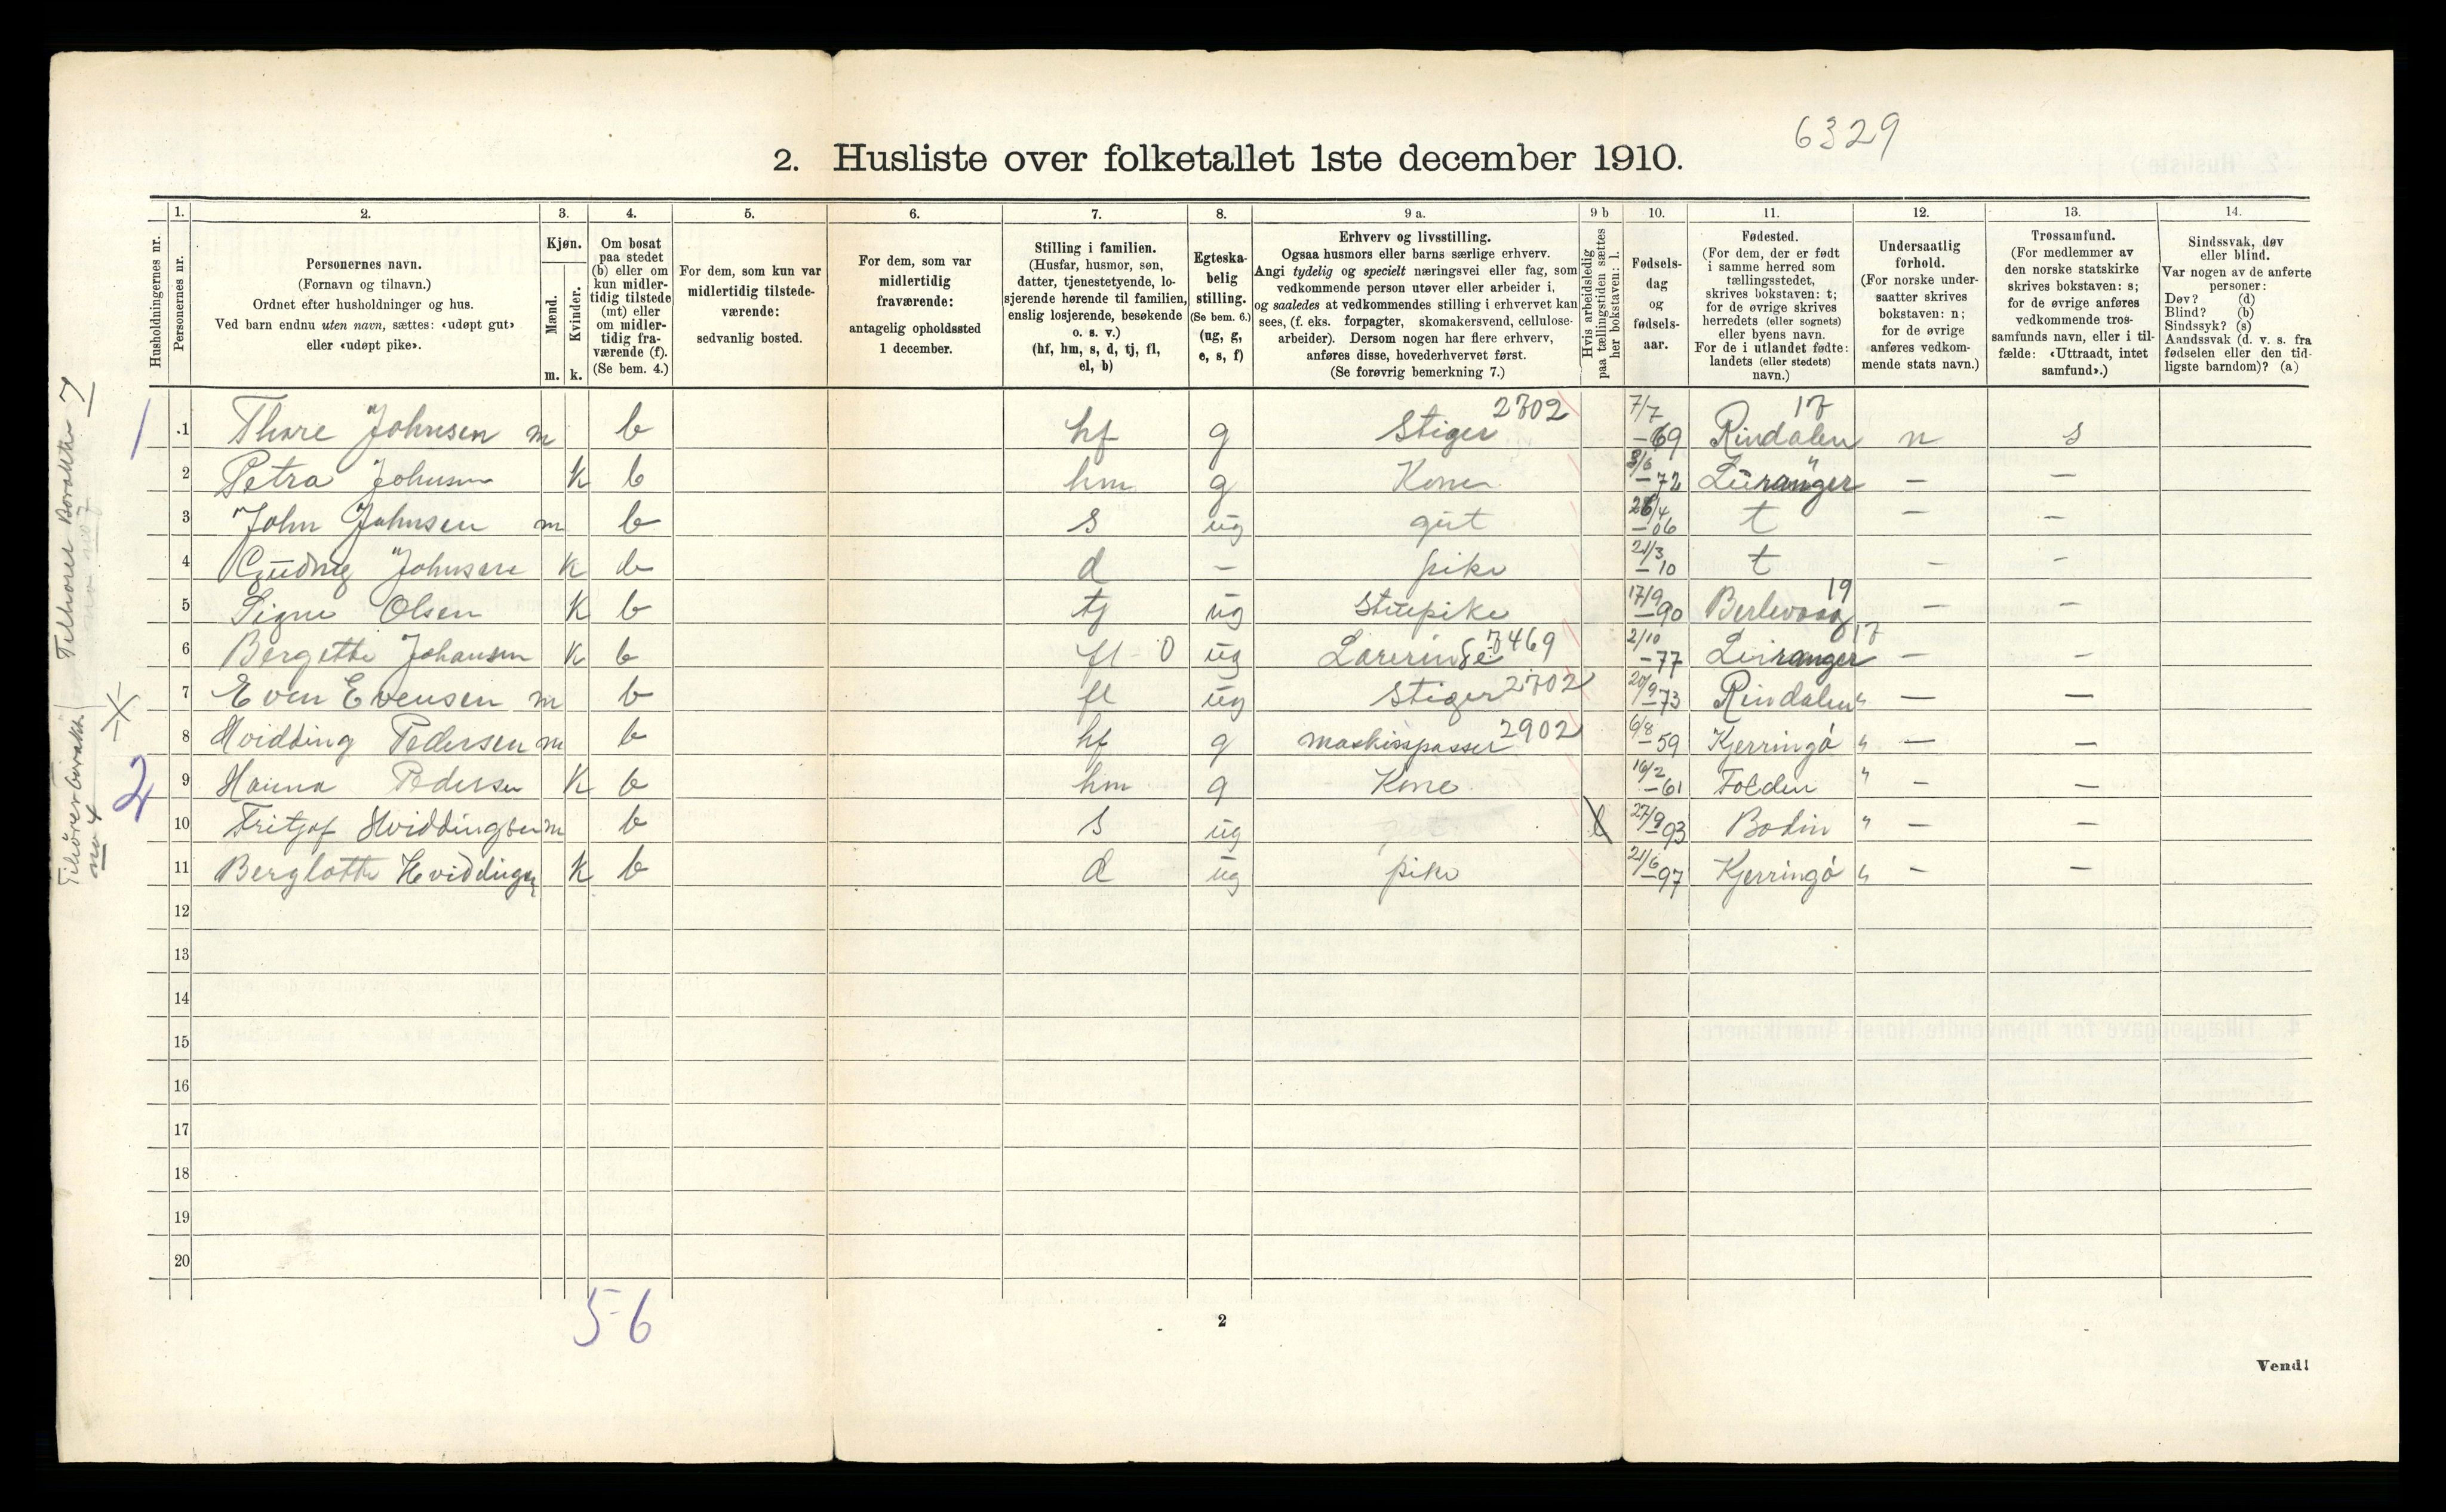 6329
2. Husliste over folketallet 1ste december 1910.
Husholdningernes nr.
1. Personernes nr.
2. Personernes navn. (Fornavn og tilnavn.) Ordnet efter husholdninger og hus. Ved barn endnu uten navn, sættes: «udøpt gut» eller «udøpt pike».
3. Kjøn. Mænd. m. Kvinder. k.
4. Om bosat paa stedet (b) eller om kun midler-tidig tilstede (mt) eller om midler-tidig fra-værende (f). (Se bem. 4.)
5. For dem, som kun var midlertidig tilstede-værende: sedvanlig bosted.
6. For dem, som var midlertidig fraværende: antagelig opholdssted 1 december.
7. Stilling i familien. (Husfar, husmor, søn, datter, tjenestetyende, lo-sjerende hørende til familien, enslig losjerende, besøkende o. s. v.) (hf, hm, s, d, tj, fl, el, b)
8. Egteska-belig stilling. (Se bem. 6.) (ug, g, e, s, f)
9 a. Erhverv og livsstilling. Ogsaa husmors eller barns særlige erhverv. Angi tydelig og specielt næringsvei eller fag, som vedkommende person utøver eller arbeider i, og saaledes at vedkommendes stilling i erhvervet kan sees, (f. eks. forpagter, skomakersvend, cellulose-arbeider). Dersom nogen har flere erhverv, anføres disse, hovederhvervet først. (Se forøvrig bemerkning 7.)
9 b Hvis arbeidsledig paa tællingstiden sættes her bokstaven: l.
10. Fødsels-dag og fødsels-aar.
11. Fødested. (For dem, der er født i samme herred som tællingsstedet, skrives bokstaven: t; for de øvrige skrives herredets (eller sognets) eller byens navn. For de i utlandet fødte: landets (eller stedets) navn.)
12. Undersaatlig forhold. (For norske under-saatter skrives bokstaven: n; for de øvrige anføres vedkom-mende stats navn.)
13. Trossamfund. (For medlemmer av den norske statskirke skrives bokstaven: s; for de øvrige anføres vedkommende tros-samfunds navn, eller i til-fælde: «Uttraadt, intet samfund».)
14. Sindssvak, døv eller blind. Var nogen av de anførte personer: Døv? (d) Blind? (b) Sindssyk? (s) Aandssvak (d. v. s. fra fødselen eller den tid-ligste barndom)? (a)
1 1 Thore Johnsen m b hf g Stiger 2702 7/7 -69 Rindalen 17 n s
2 Petra Johnsen k b hm g Kone 3/6 -72 Leiranger " — —
3 John Johnsen m b s ug gut 26/4 -06 t — —
4 Gudny Johnsen k b d — pike 21/3 -10 t — —
5 Signe Olsen k b tj ug Stuepike 17/9 -90 Berlevaag 19 — —
6 Bergette Johansen k b fl 0 ug Lærerinde 7469 2/10 -77 Leiranger 17 — —
7 Even Evensen m b fl ug Stiger 2702 20/9 73 Rindalen " — —
2 8 Hvidding Pedersen m b hf g maskinpasser 2902 6/8 -59 Kjerringø " — —
9 Hanna Pedersen k b hm g Kone 16/2 -61 Folden " — —
10 Fritjof Hviddingsen m b s ug l 27/9 93 Bodin " — —
11 Berglotte Hviddingsen k b d ug pike 21/6 -97 Kjerringø " — —
12
13
14
15
16
17
18
19
20
5-6
2
Vend!